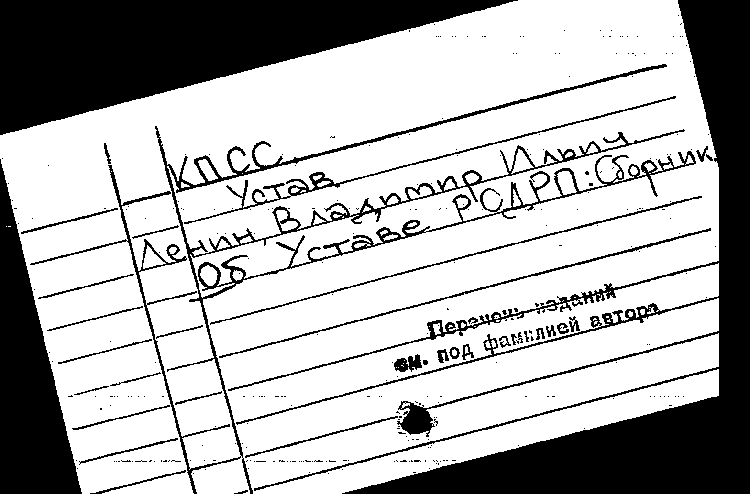 КПСС.
Устав
Ленин, Владимир Ильич.
Об Уставе РСДРП: Сборник.
Перечень изданий
см. под фамилией автора